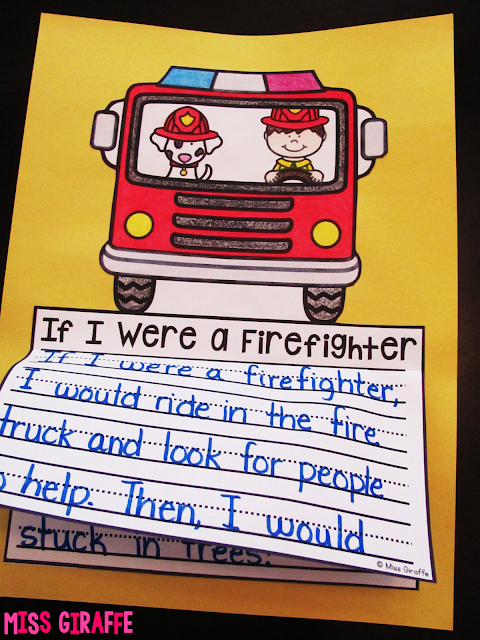 If I Were a Firefighter
If I were a firefighter,
I would ride in the fire
truck and look for people
help. Then, I would
© Miss Giraffe
stuck in trees.
MISS GIRAFFE